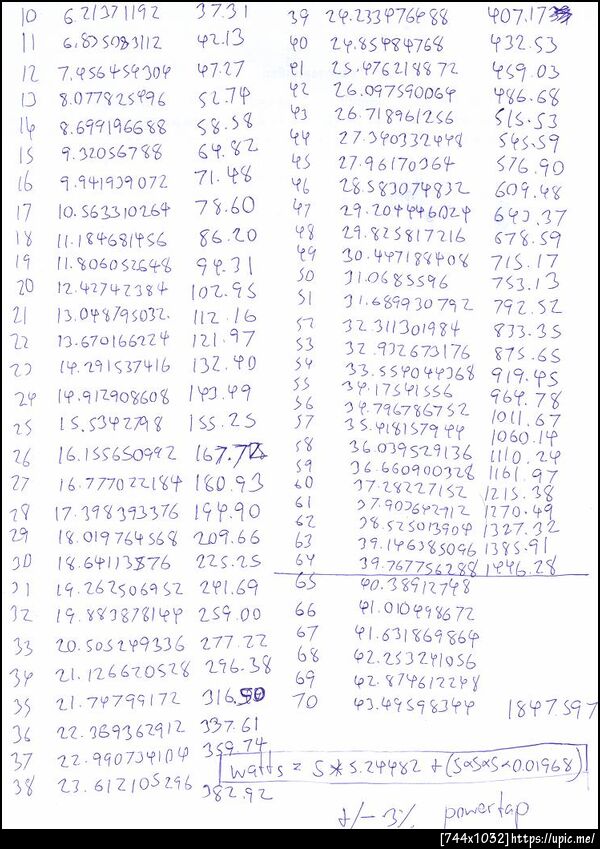 10 6.21371192 37.31
11 6.835083112 42.13
12 7.456454304 47.27
13 8.077825496 52.74
14 8.699196688 58.58
15 9.32056788 64.82
16 9.941939072 71.48
17 10.563310264 78.60
18 11.184681456 86.20
19 11.806052648 94.31
20 12.42742384 102.95
21 13.048795032. 112.16
22 13.670166224 121.97
23 14.291537416 132.40
24 14.912908608 143.49
25 15.5342798 155.25
26 16.155650992 167.72
27 16.777022184 180.93
28 17.398393376 194.90
29 18.019764568 209.66
30 18.64113576 225.25
31 19.262506952 241.69
32 19.883878144 259.00
33 20.505249336 277.22
34 21.126620528 296.38
35 21.74799172 316.50
36 22.369362912 337.61
37 22.990734104 359.74
38 23.612105296 382.92
39 24.233476488 407.17
40 24.85484768 432.53
41 25.476218872 459.03
42 26.097590064 486.68
43 26.718961256 515.53
44 27.340332448 545.59
45 27.96170364 576.90
46 28.583074832 609.48
47 29.204446024 643.37
48 29.825817216 678.59
49 30.447188408 715.17
50 31.0685596 753.13
51 31.689930792 792.52
52 32.311301984 833.35
53 32.932673176 875.65
54 33.554044368 919.45
55 34.17541556 964.78
56 34.796786752 1011.67
57 35.418157944 1060.14
58 36.039529136 1110.24
59 36.660900328 1161.97
60 37.28227152 1215.38
61 37.903642912 1270.49
62 38.525013904 1327.32
63 39.146385096 1385.91
64 39.767756288 1446.28
65 40.38912748
66 41.010498672
67 41.631869864
68 42.253241056
69 42.874612248
70 43.49598344 1847.597
watts = S * 5.24482 + (S*S*S*0.01968)
+/- 3% powertap
[744x1032]https://upic.me/